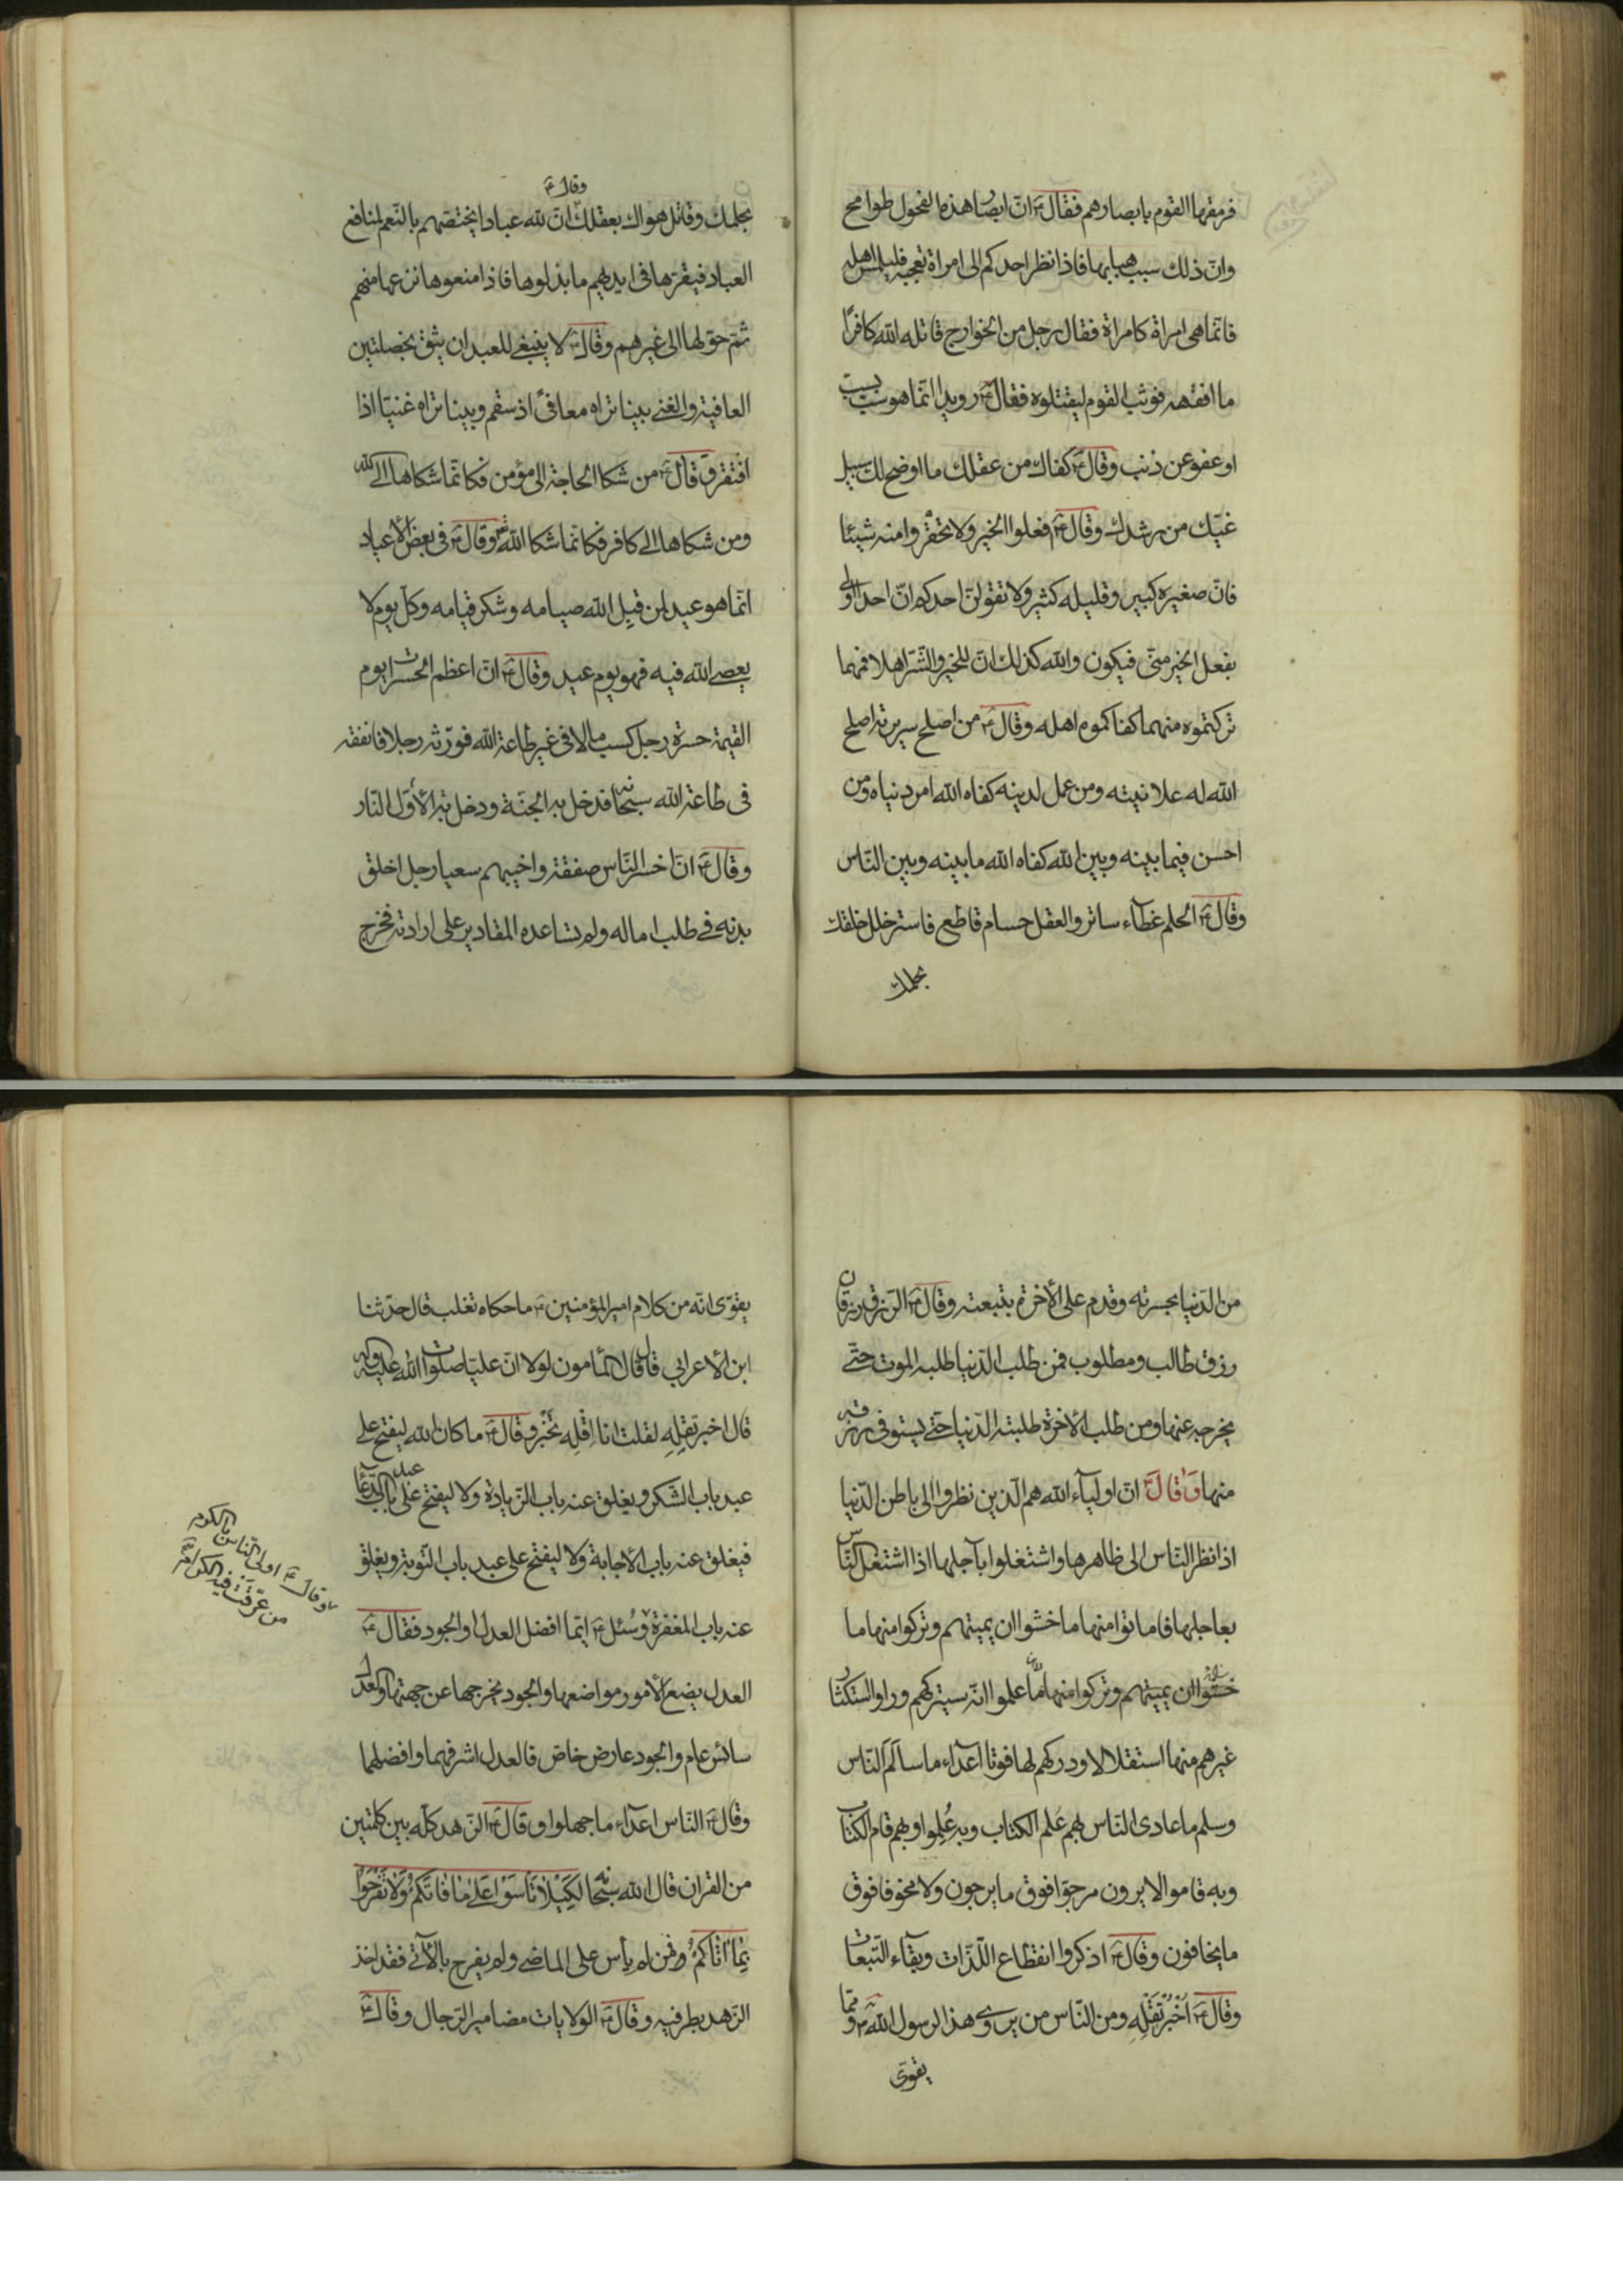 فرمقها القوم بابصارهم فقال ع ان ابصار هذه الفحول طوامح
وانّ ذلك سبب هبابها فاذا نظر احدكم الى امراة تعجبه فليلمس اهله
فانّما هى امراة كامراة فقال رجل من الخوارج قاتله الله كافرًا
ما افقهه فوثب القوم ليقتلوه فقال ع رويدا انّما هو سبّ بسبّ
او عفو عن ذنب وقال ع كفاك من عقلك ما اوضح لك سبيل
غيّك من رشدك وقال ع افعلوا الخير ولا تحقروا منه شيئا
فانّ صغيره كبير وقليله كثير ولا تقولنّ احدكم انّ احدا اولى
بفعل الخير منّى فيكون والله كذلك انّ للخير والشّر اهلا فمهما
تركتموه منهما كفاكموه اهله وقال ع من اصلح سريرته اصلح
الله له علانيته ومن عمل لدينه كفاه الله امر دنياه ومن
احسن فيما بينه وبين الله كفاه الله ما بينه وبين النّاس
وقال ع الحلم غطآء ساتر والعقل حسام قاطع فاستر خلل خلقك
بحلمك
وقال ع
بحلمك وقاتل هواك بعقلك انّ لله عبادا يختصّهم بالنّعم لمنافع
العباد فيقرّها فى ايديهم ما بذلوها فاذا منعوها نزعها منهم
ثمّ حوّلها الى غيرهم وقال ع لا ينبغى للعبد ان يثق بخصلتين
العافية والغنى بينا تراه معافىً اذ سقم وبينا تراه غنيّا اذا
افتقر وقال ع من شكا الحاجة الى مؤمن فكانّما شكاها الى الله
ومن شكاها الى كافر فكانّما شكا الله وقال ع فى بعض الأعياد
انّما هو عيد لمن قبل الله صيامه وشكر قيامه وكلّ يوم لا
يعصى الله فيه فهو يوم عيد وقال ع انّ اعظم الحسرات يوم
القيمة حسرة رجل كسب مالا فى غير طاعة الله فورّثه رجلا فانفقه
فى طاعة الله سبحانه فدخل به الجنّة ودخل به الأوّل النّار
وقال ع انّ اخسر النّاس صفقة واخيبهم سعيا رجل اخلق
بدنه فى طلب اماله ولم تساعده المقادير على ارادته فخرج
من الدّنيا بحسرته وقدم على الأخرة بتبعته وقال ع الرّزق رزقان
رزق طالب ومطلوب فمن طلب الدّنيا طلبه الموت حتّى
يخرجه عنها ومن طلب الأخرة طلبته الدّنيا حتّى يستوفى رزقه
منها وقال ع انّ اوليآء الله هم الّذين نظروا الى باطن الدّنيا
اذا نظر النّاس الى ظاهرها واشتغلوا بآجلها اذا اشتغل النّاس
بعاجلها فاماتوا منها ما خشوا ان يميتهم وتركوا منها ما
خشوا ان يميتهم وتركوا منها ما علموا انّه سيتركهم وراوا استكثار
غيرهم منها استقلالا ودركهم لها فوتا اعدآء ما سالم النّاس
وسلم ما عادى النّاس بهم عُلم الكتاب وبه عُلِموا وبهم قام الكتاب
وبه قاموا لا يرون مرجوّا فوق ما يرجون ولا مخوفا فوق
ما يخافون وقال ع اذكروا انقطاع اللّذّات وبقآء التّبعات
وقال ع اُخْبُرْ تَقْلِهِ ومن النّاس من يروى هذا لرسول الله ص وممّا
يقوّى
يقوّى انّه من كلام امير المؤمنين ع ما حكاه ثعلب قال حدّثنا
ابن الأعرابي قال قال المأمون لولا انّ عليّا صلوات الله عليه وآله
قال اخبر تقلِهِ لقلت انا اِقْلِه تَخْبُر وقال ع ما كان الله ليفتح على
عبد باب الشّكر ويغلق عنه باب الزّيادة ولا ليفتح على عبد باب الدّعآء
فيغلق عنه باب الأجابة ولا ليفتح على عبد باب التّوبة ويغلق
عنه باب المغفرة وسُئل ع ايّما افضل العدل او الجود فقال ع
العدل يضع الأمور مواضعها والجود يخرجها عن جهتها والعدل
سائس عام والجود عارض خاصّ فالعدل اشرفهما وافضلهما
وقال ع النّاس اعدآء ما جهلوا وقال ع الزّهد كلّه بين كلمتين
من القران قال الله سبحانه لِكَيْلا تَأْسَوْا عَلى ما فاتَكُمْ وَلا تَفْرَحُوا
بِما آتاكُمْ ومن لم يأس على الماضى ولم يفرح بالآتى فقد اخذ
الزّهد بطرفيه وقال ع الولايات مضامير الرّجال وقال ع
وقال ع اولى النّاس بالكرم
من عرّقت فيه الكرام